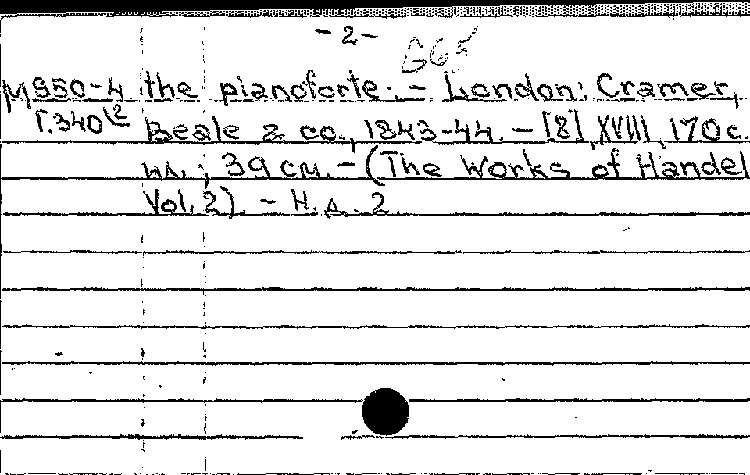 -2-
G65
М950-4 the pianoforte. - London: Cramer,
Г.340 Beale & co., 1843-44. - [8], XVIII, 170 с.
ил.; 39 см. - (The Works of Handel
Vol. 2). - Н. д. 2